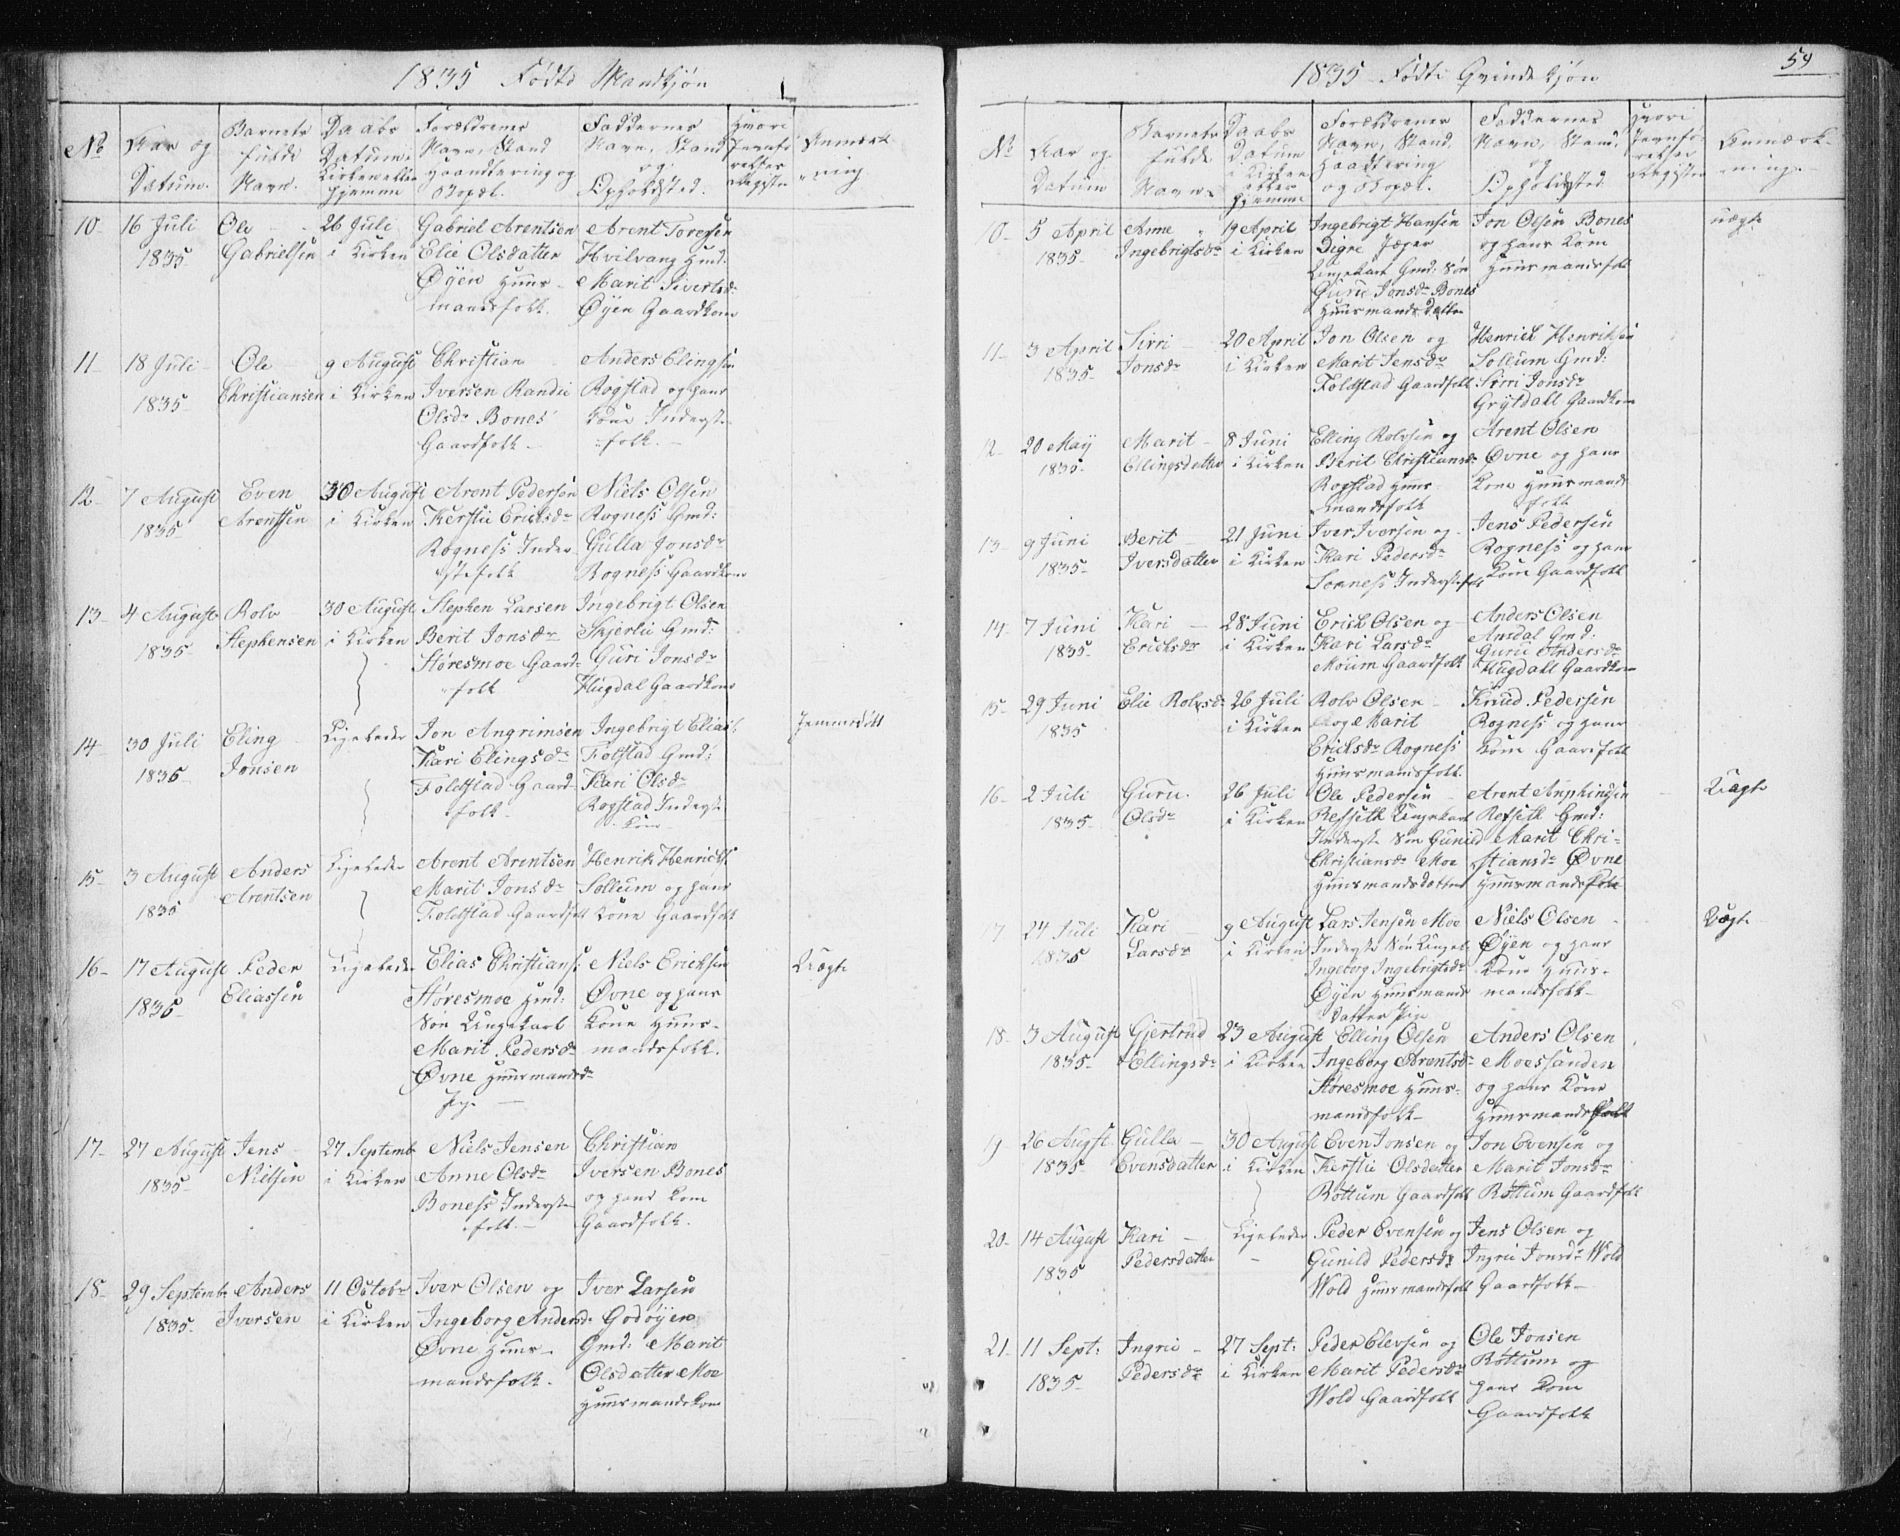 1835 Fødte Mandkjøn
No
Aar og
Datum.
Barnets
fulde
Navn.
Daabs
Datum i
Kirken eller
hjemme
Forældrenes
Navn, Stand
Haandtering og
Bopæl.
Faddernes
Navn, Stand
og
Opholdsted.
Hvori
Jevnfø
relses
Registre
Anmærk
-ning
10- 16 Juli
1835
Ole
Gabrielsen
26 Juli
i Kirken
Gabriel Arentsen
Elie Olsdatter
Øÿen Huus-
mandsfolk.
Arent Toresen
Hvilvang Gmd:
Marit Sivertsd:
Øÿen Gaardkone
11- 18 Juli
1835-
Ole
Christiansen
9 August
i Kirken
Christian
Iversen Randie
Olsdr Bones
Gaardfolk-
Anders Elingsen
Rogstad og hans
Kone Inderst-
folk.-
12- 7 August
1835-
Even
Arentsen
30 August
i Kirken
Arent Pedersen
Kerstie Ericksdr
Rogness Inder
stefolk
Niels Olsen
Rogness Gmd:
Gulla Jonsdr
Rogness Gaardkone
13- 4 August
1835-
Rolv
Stephensen
30 August
i Kirken
Stephen Larsen
Berit Jonsdr
Støresmoe Gaard-
folk
Ingebrigt Olsen
Skjerlie Gmd:
Guri Jonsdr
Hugdal Gaardkone
14 30 Juli
1835-
Eling
Jonsen
Ligeledes
Jon Angrimsen
Kari Elingsdr
Foldstad Gaard
folk-
Ingebrigt Elias:
Folstad Gmd:
Kari Olsdr
Rogstad Inderst
Kone
Hjemmedøbt
15- 3 August
1835
Anders
Arentsen
Ligeledes
Arent Arentsen
Marit Jonsdr
Foldstad Gaardfolk
Henrik Henricks.
Sollum og hans
Kone Gaardfolk
16- 17 August
1835-
Peder
Eliassen
Ligeledes
Elias Christians:
Støresmoe Gmd:
Søn Ungekarl
Marit Pedersdr
Øvne Huusmandsdr
Pige
Niels Ericksen
Øvne og hans
Kone Huus-
mandsfolk.
Uægte
17- 27 August
1835-
Jens
Nielsen
27 Septemb
i Kirken
Niels Jensen
Anne Olsdr
Boness Inderste
folk.-
Christian
Iversen Bones
og hans Kone
Gaardfolk.
18- 29 Septemb
1835-
Anders
Iversen
11 Octobr
i Kirken
Iver Olsen og
Ingeborg Andersd:
Øvne Huus-
mandsfolk.
Iver Larsen
Godøÿen
Gmd: Marit
Olsdatter Moe
Huusmandskone
59
1835 Fødte Qvindekjøn
No
Aar og
Datum
Barnets
fulde
Navn-
Daabs
Datum
i Kirken
eller
hjemme
Forældrenes
Navn, Stand
Haandtering
og Bopæl.
Faddernes
Navn, Stand,
og
Opholdsted
Hvori
Jevnfø-
relses
Registre
Anmærk-
-ning-
10- 5 April
1835-
Anne
Ingebrigtsdr
19 April
i Kirken
Ingebrigt Hansen
Digre Jæger
Ungekarl Gmd: Søn
Gurie Jonsdr Bones
Huusmands Datter
Jon Olsen Bones
og hans Kone
Huusmandsfolk
uægte
11- 3 April
1835-
Sirri
Jonsdr
20 April
i Kirken
Jon Olsen og
Marit Jensdr
Foldstad Gaardfolk
Henrick Henriksen
Sollum Gmd:
Sirri Jonsdr
Grytdall Gaardkone
12- 20 Maÿ
1835-
Marit-
Ellingsdatter
8 Juni
i Kirken
Elling Rolvsen og
Berit Christiansdr
Rogstad Huus
mandsfolk
Arent Olsen
Øvne og hans
Kone Huusmands
folk
13- 9 Juni
1835-
Berit-
Iversdatter
21 Juni
i Kirken
Iver Iversen og-
Kari Pedersdr
Sorness Inderstefolk
Jens Pedersen
Rogness og hans
Kone Gaardfolk
14- 7 Juni
1835-
Kari-
Ericksdr
28 Juni
i Kirken
Erick Olsen og-
Kari Larsdr
Moum Gaardfolk
Anders Olsen
Amdal Gmd:
Gurie Andersdr
Hugdall Gaardkone
15- 29 Juni
1835
Elie Rolvsdr
26 Juli
i Kirken
Rolv Olsen-
og Marit
Ericksdr Rogness
Huusmandsfolk.
Knud Pedersen
Rogness og hans
Kone Gaardfolk
16- 2 Juli
1835-
Guru-
Olsdr
26 Juli
i Kirken
Ole Pedersen-
Refseth Ungekarl
Inderst Søn Gunild
Christiansdr Moe
Huusmandsdatter
Arent Amphindsen
Refseth Gmd:
Marit Chri-
stiansdr Øvne
Huusmandsfolk
Uægte
17 24 Juli
1835
Kari-
Larsdr
9 August
i Kirken
Lars Jensen Moe
Inderste Søn Ungek.
Ingeborg Ingebrigtsdr
Øÿen Huusmands
Datter Pige
Niels Olsen
Øÿen og hans
Kone Huus-
mandsfolk-
Uægte
18- 3 August
1835-
Gjertrud
Ellingsdr
23 August
i Kirken
Elling Olsen
Ingeborg Arentsdr
Støresmoe Huus-
mandsfolk-
Anders Olsen
Moessanden
og hans Kone
Huusmandsfolk
19 26 Augst
1835-
Gulla-
Evensdatter
30 August
i Kirken
Even Jonsen og
Kerstie Olsdatter
Røttum Gaardfolk
Jon Evensen og
Marit Jonsdr
Røttum Gaardfolk
20- 14 August
1835
Kari-
Pedersdatter
Ligeledes
Peder Evensen og
Gunild Pedersdr
Wold Huusmandsfolk
Jens Olsen og
Ingrie Jonsdr Wold
Gaardfolk-
21- 11 Sept:
1835-
Ingrie-
Pedersdr
27 Sept:
i Kirken
Peder Elevsen og
Marit Pedersdr
Wold Gaardfolk
Ole Jonsen
Røttum og
hans Kone
Gaardfolk